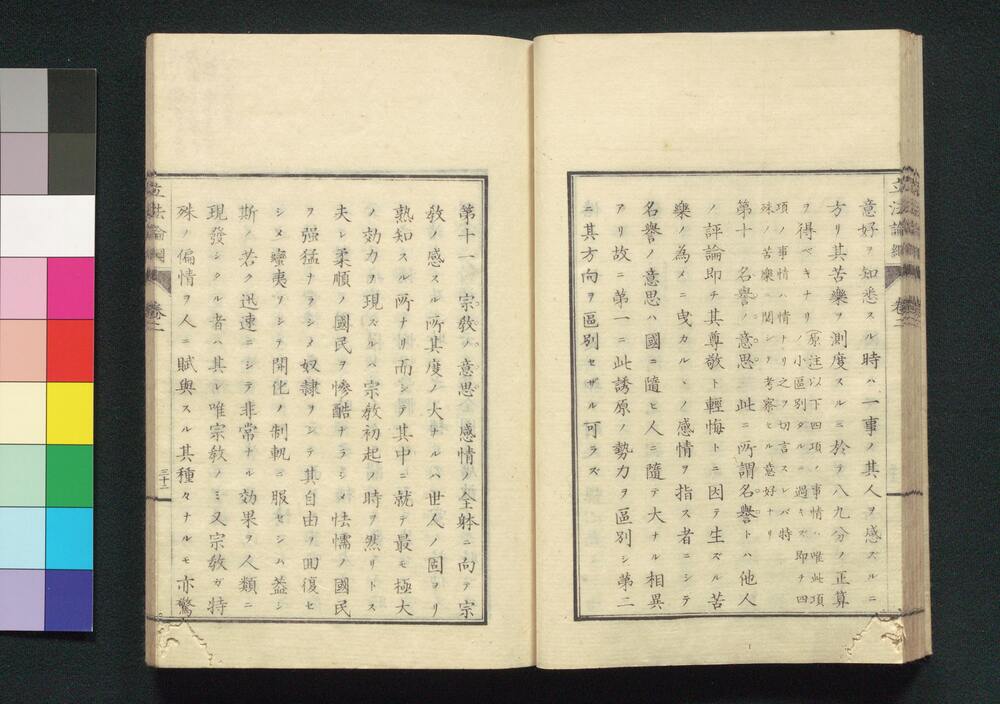 立法論綱 卷二
意好ヲ知悉スル時ハ一事ノ其人ヲ感ズルニ
方リ其苦樂ヲ測度スルニ於テ八九分ノ正算
ヲ得ベキナリ(原註以下四項ノ事情ハ唯此項
ノ小區別タルニ過キズ即チ四
項ノ事情ハ情トリ之ヲ切言スレバ特
殊ノ苦樂ニ関シテ考察セル意好ナリ
第十 名譽ノ意思 此ニ所謂名譽トハ他人
ノ評論即チ其尊敬ト輕悔トニ因テ生ズル苦
樂ノ為メニ曳カルヽノ感情ヲ指ス者ニシテ
名譽ノ意思ハ國ニ隨ヒ人ニ隨テ大ナル相異
アリ故ニ第一ニ此誘原ノ勢力ヲ區別シ第二
ニ其方向ヲ區別セザル可ラズ
第十一 宗教ノ意思 感情ノ全躰ニ向テ宗
教ノ感スル所其度ノ大ナルハ世人ノ固ヨリ
熟知スル所ナリ而シテ其中ニ就テ最モ極大
ノ効力ヲ現ズルハ宗教初起ノ時ヲ然リトス
夫レ柔順ノ國民ヲ慘酷ナラシメ怯懦ノ國民
ヲ强猛ナラシメ奴隷ヲシテ其自由ヲ回復セ
シメ蠻夷ヲシテ開化ノ制軌ニ服セシハ葢シ
斯ノ若ク迅速ニシテ非常ナル効果ヲ人類ニ
現發シタル者ハ其レ唯宗教ノミ又宗教ガ特
殊ノ偏情ヲ人ニ賦與スル其種々ナルモ亦驚
立法論綱 卷二 三十二